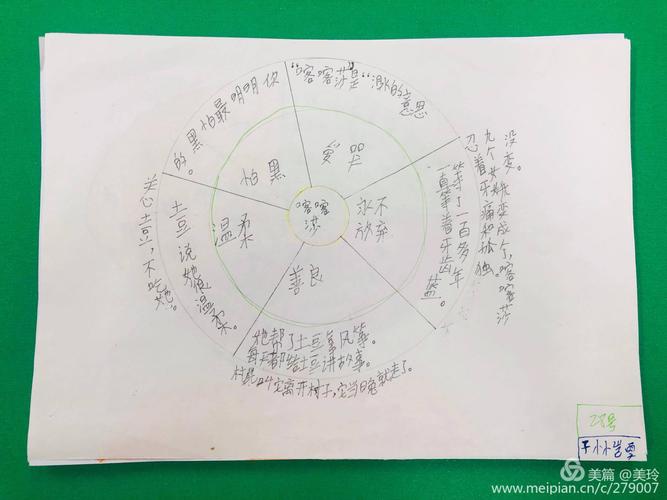 喀喀莎
爱哭
"喀喀莎是"泪的意思
永不放弃
等了一百多年
一直等着牙齿蓝。
没变。
九个女妖变成个,喀喀莎
忍着牙痛和孤独。
善良
她帮了土豆
每天都给土豆讲故事。
村民叫它离开村子,它当晚就走了。
温柔
土豆说她很温柔。
关心土豆,不吃她。
怕黑
黑怕最明明你的。
28号
美篇 @美玲
www.meipian.cn/c/279007